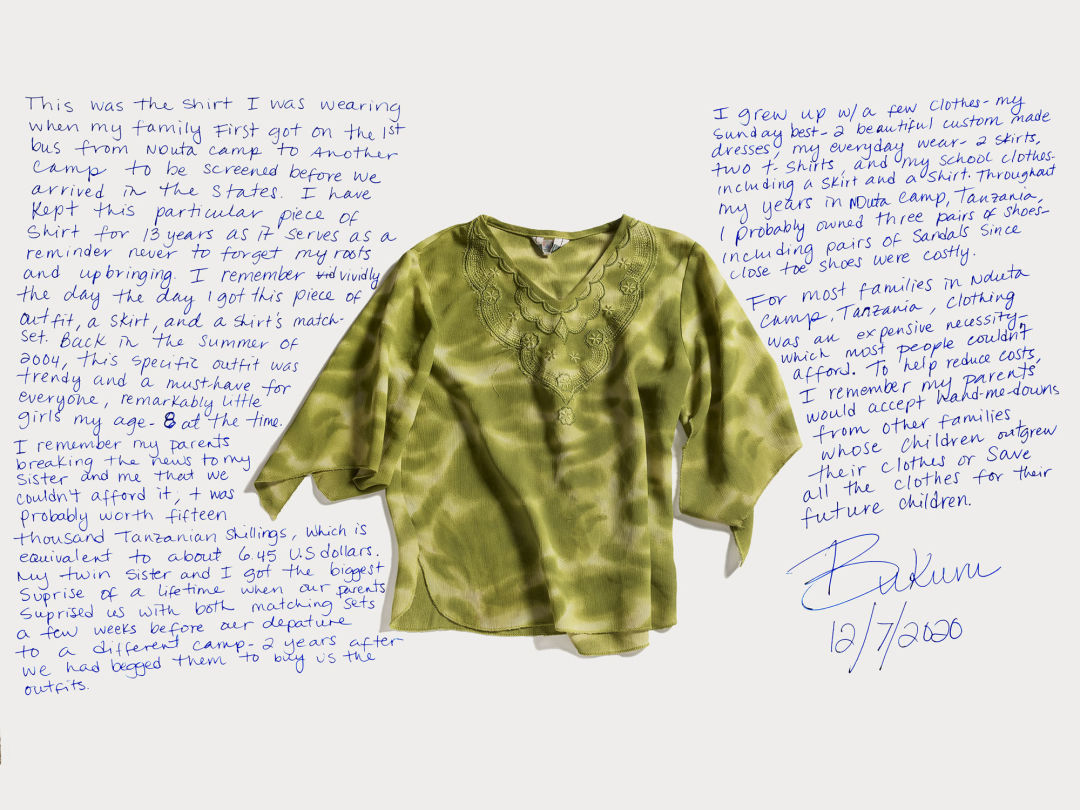 This was the shirt I was wearing
when my family First got on the 1st
bus from Nduta camp to Another
camp to be screened before we
arrived in the States. I have
kept this particular piece of
Shirt for 13 years as it serves as a
reminder never to forget my roots
and upbringing. I remember vid vividly
the day the day I got this piece of
outfit, a skirt, and a shirt's match-
set. Back in the summer of
2004, this specific outfit was
trendy and a must-have for
everyone, remarkably little
girls my age - 8 at the time.
I remember my parents
breaking the news to my
Sister and me that we
couldn't afford it; it was
probably worth fifteen
thousand Tanzanian Shillings, which is
equivalent to about 6.45 U.S dollars.
My twin sister and I got the biggest
Suprise of a lifetime when our parents
Suprised us with both matching sets
a few weeks before our depature
to a different camp - 2 years after
we had begged them to buy us the
outfits.
I grew up w/a few clothes - my
Sunday best - 2 beautiful custom made
dresses, my everyday wear - 2 skirts,
two t-shirts, and my school clothes-
including a skirt and a shirt. Throughout
my years in Nduta Camp, Tanzania,
I probably owned three pairs of shoes-
including pairs of Sandals since
close toe shoes were costly.
For most families in Nduta
camp, Tanzania, clothing
was an expensive necessity-
which most people couldn't
afford. To help reduce costs,
I remember my parents
would accept hand-me-downs
from other families
whose children outgrew
their clothes or save
all the clothes for their
future children.
Bukuru
12/7/2020